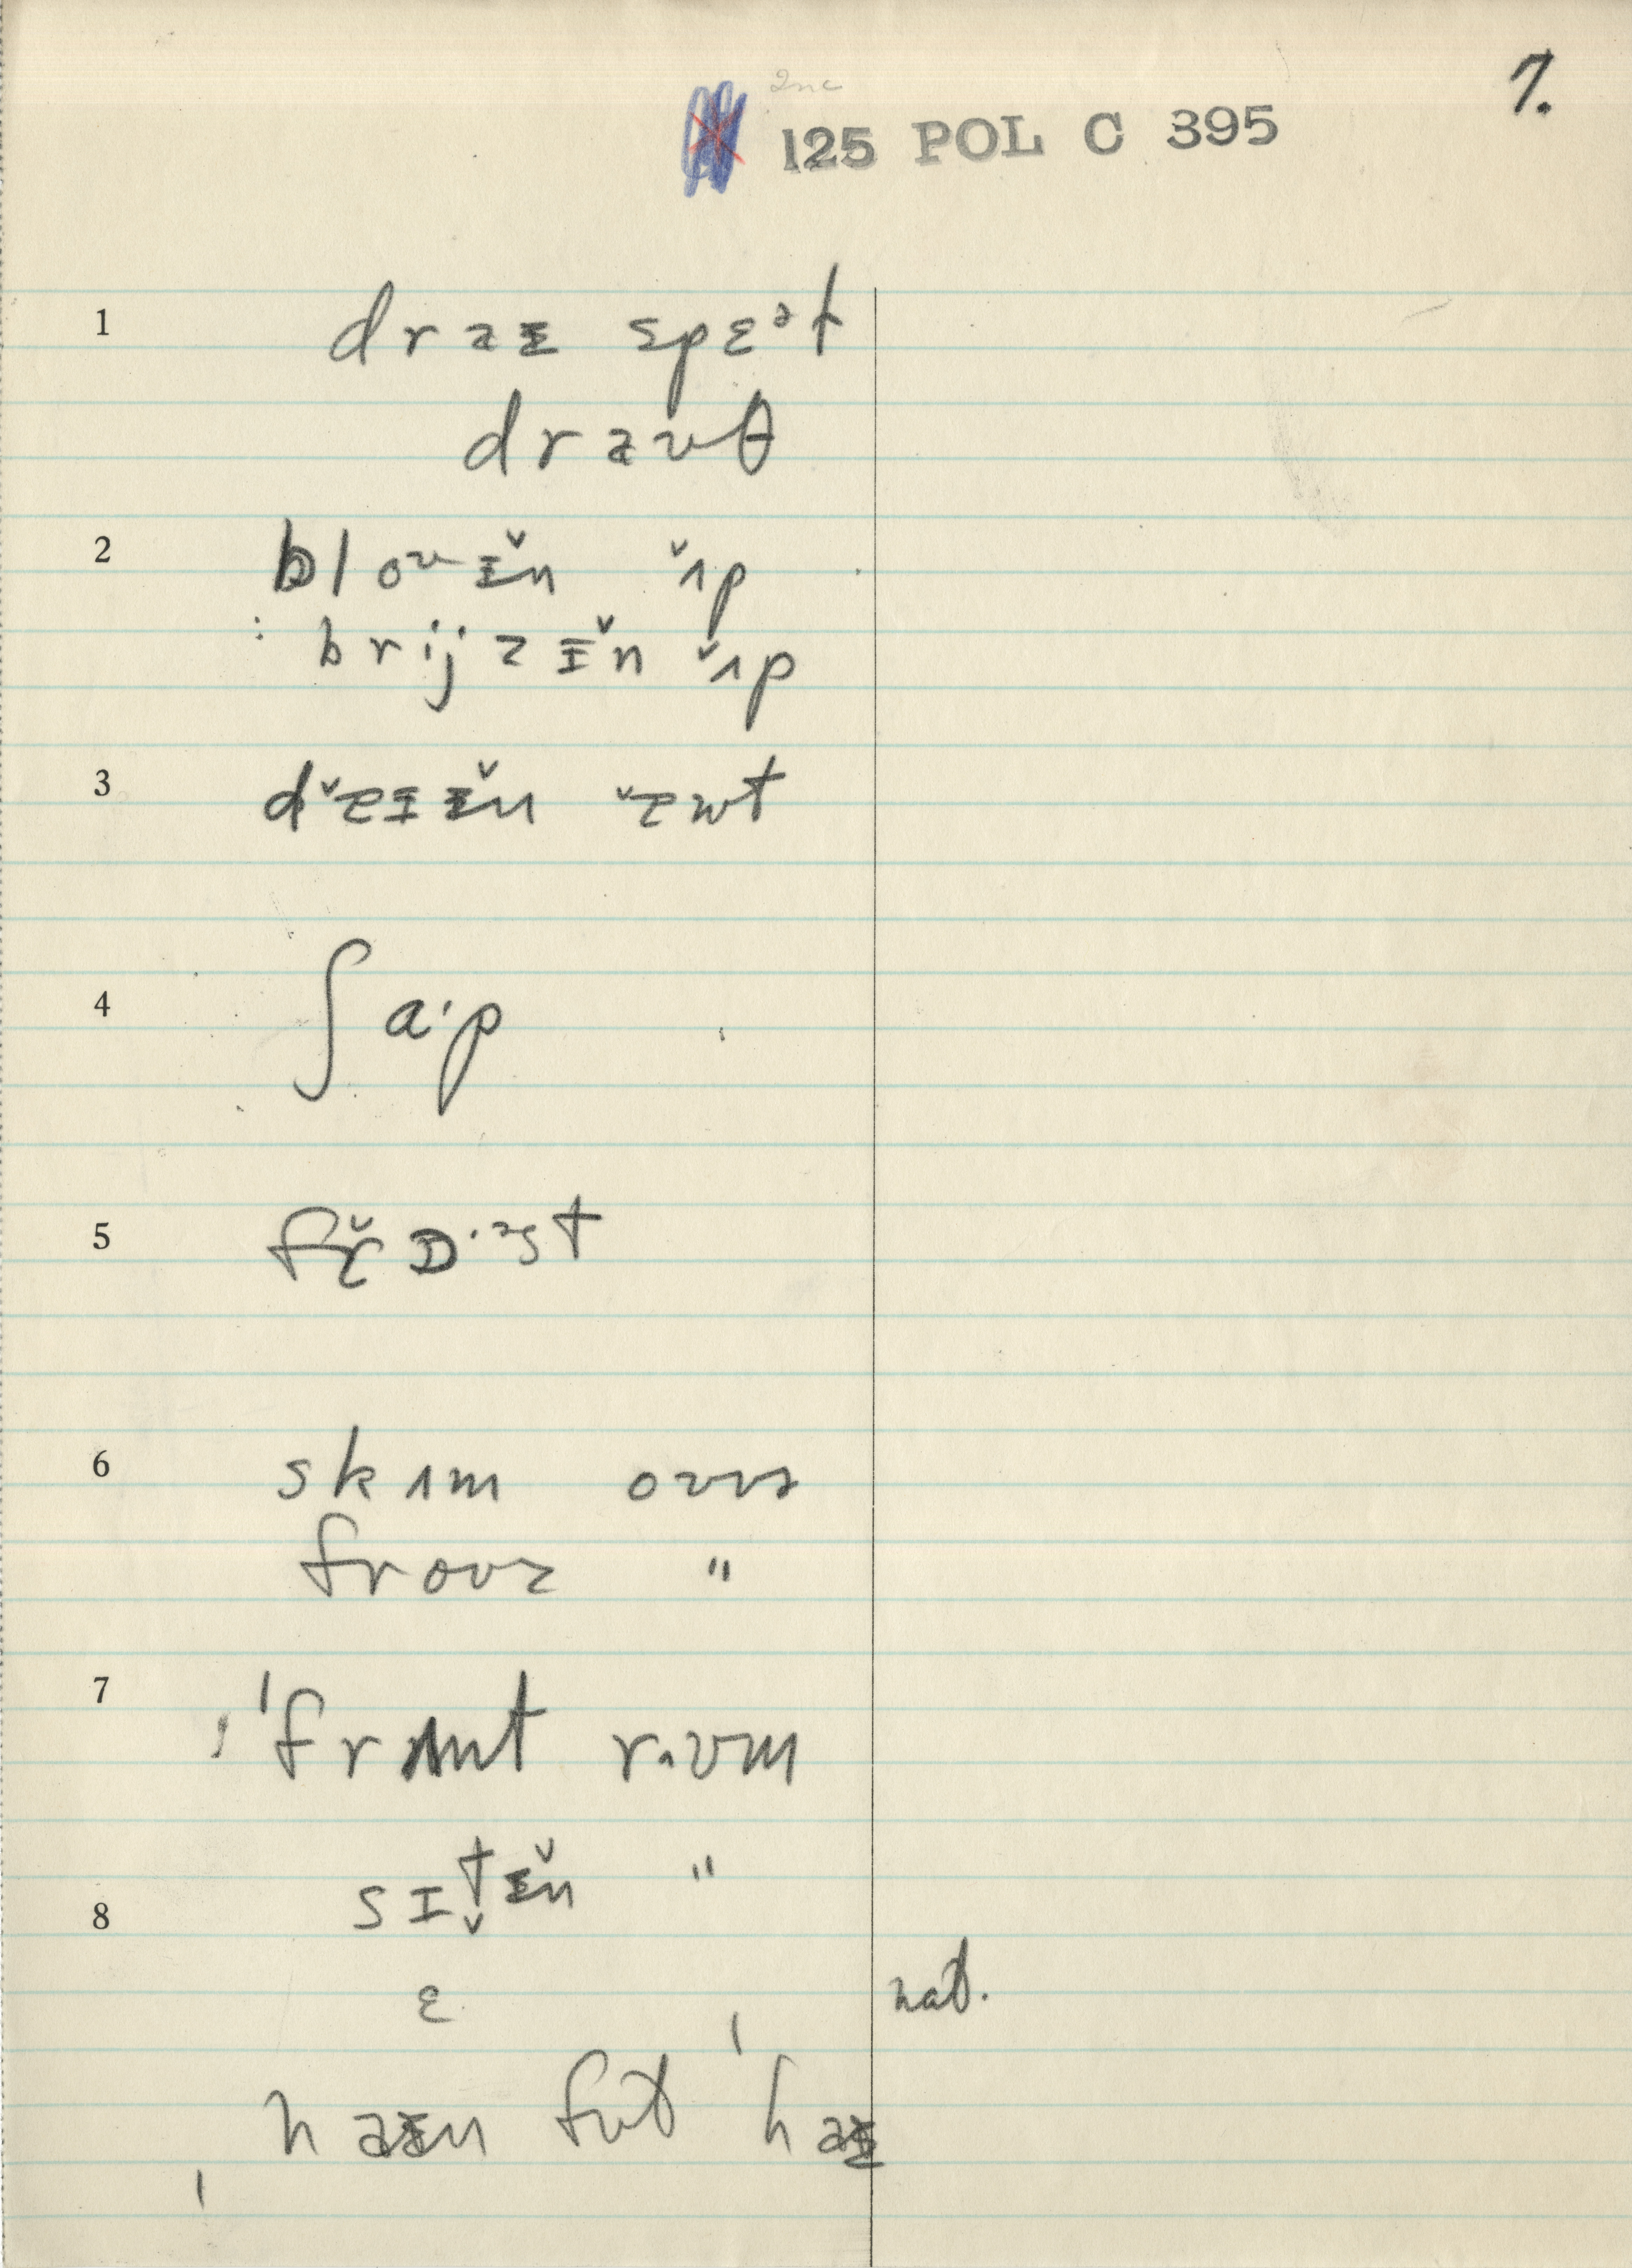 7.
125 POL C 395
1 draɪ spɛᵊt
draʊθ
2 bloʊɪ̌n ʌ̌p
: brijzɪ̌n ʌ̌p
3 dæ̌ɪɪ̌n æ̌wt
4 ʃa·p
5 fɪ̌ɒ·ᵊst
6 skɪm oʊvə
froʊz "
7 ˈfrʌnt rʊm
sɪt̬ɪ̌n "
8
ɛ nat.
naɪn fʊt ˈhaɪ